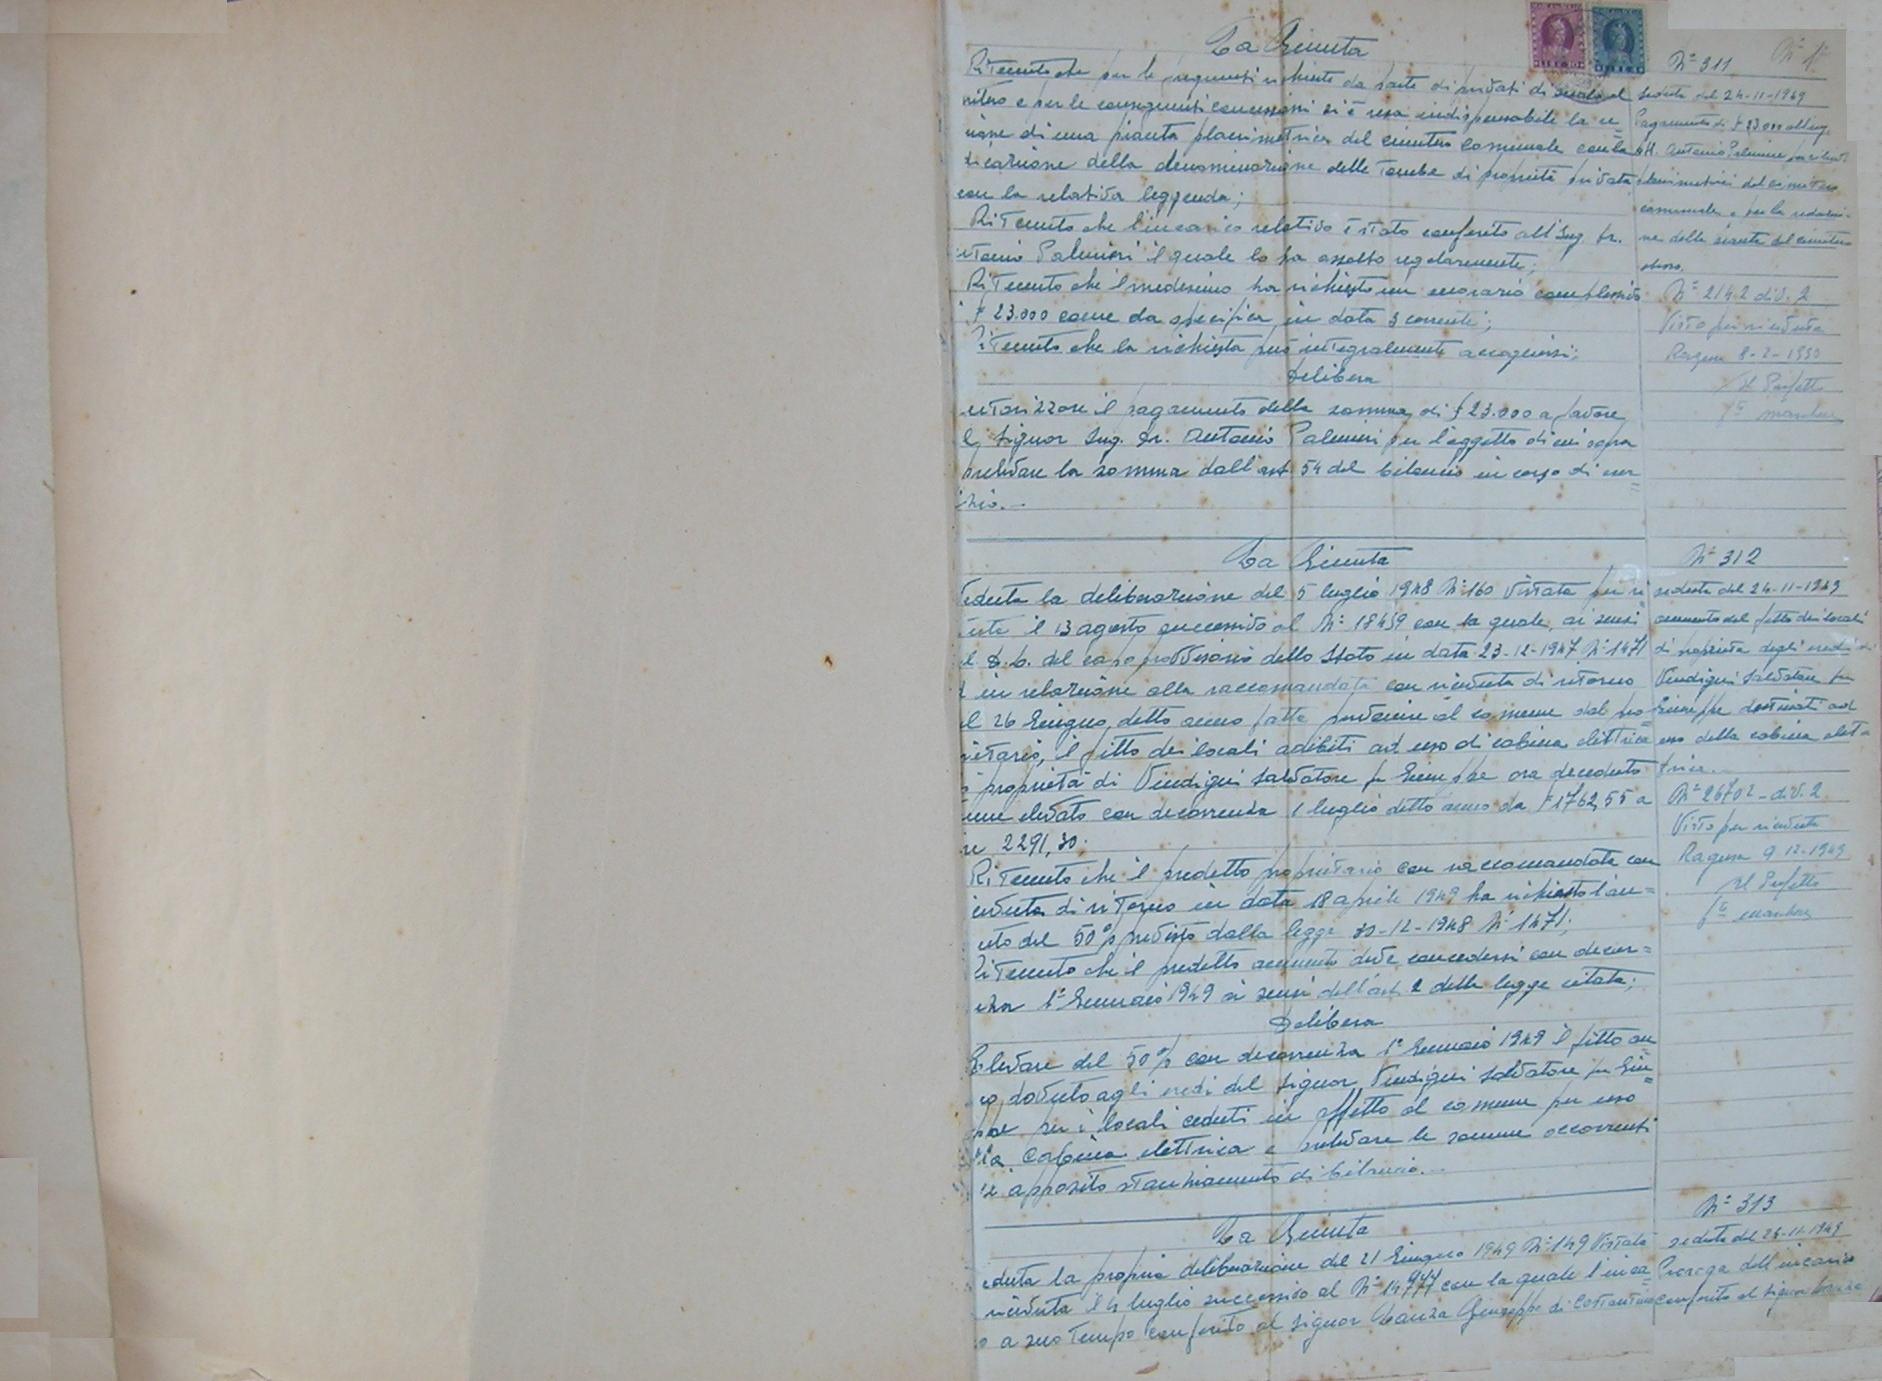 La Giunta
Ritenuto che per le frequenti richieste da parte di privati di
e per le conseguenti concessioni si è resa indispensabile la re=
zione di una pianta planimetrica del cimitero comunale con la
dicazione della denominazione delle Tombe di proprietà privata
con la relativa leggenda;
Ritenuto che l'incarico relativo è stato conferito all'Ing. Dr.
Palmieri il quale lo ha assolto regolarmente;
Ritenuto che il medesimo ha richiesto un onorario complessivo
£ 23.000 come da specifica in data 3 corrente;
Ritenuto che la richiesta può integralmente accogliersi;
Delibera
autorizzare il pagamento della somma di £ 23.000 a favore
Signor Ing. Dr. Antonio Palmieri per l'oggetto di cui sopra
prelevare la somma dall'art. 54 del bilancio in corso di eser=
cizio.-
N° 311
seduta del 24-11-1949
Pagamento di £ 23.000 all'ing.
Antonio Palmieri per
planimetrici del cimitero
comunale e per la redazio-
ne della pianta del cimitero
stesso.
N° 2142 div. 2
Visto per ricevuta
Ragusa 8-2-1950
Il Prefetto
La Giunta
Veduta la deliberazione del 5 luglio 1948 N° 160 vistata per ri=
il 13 agosto successivo al N° 18459 con la quale, ai sensi
D. L. del capo provvisorio dello Stato in data 23-12-1947 N° 1471
in relazione alla raccomandata con ricevuta di ritorno
26 Giugno detto anno fatta pervenire al comune dal pro=
prietario, il fitto dei locali adibiti ad uso di cabina elettrica
proprietà di Vindigni Salvatore fu Giuseppe ora deceduto
elevato con decorrenza 1 luglio detto anno da £ 1762,55 a
2291,30.
Ritenuto che il predetto proprietario con raccomandata con
ricevuta di ritorno in data 18 aprile 1949 ha richiesto l'au=
mento del 50% previsto dalla legge 30-12-1948 N° 1471;
Ritenuto che il predetto aumento deve concedersi con decor=
renza 1° Gennaio 1949 ai sensi dell'art. 2 della legge citata;
Delibera
Elevare del 50% con decorrenza 1° Gennaio 1949 il fitto an=
nuo dovuto agli eredi del Signor Vindigni Salvatore fu Giu=
seppe per i locali ceduti in affitto al comune per uso
della Cabina elettrica e prelevare le somme occorrenti
apposito stanziamento di bilancio.-
N° 312
seduta del 24-11-1949
aumento del fitto dei locali
di proprietà degli eredi di
Vindigni Salvatore fu
Giuseppe destinati ad
uso della cabina elet
trica.
N° 26702 - div. 2
Visto per ricevuta
Ragusa 9 12-1949
Il Prefetto
La Giunta
Veduta la propria deliberazione del 21 Giugno 1949 N° 149 vistata
ricevuta il 4 luglio successivo al N° con la quale l'inca=
a suo tempo conferito al signor Giuseppe di
N° 313
seduta del 24-11-1949
Proroga dell'incarico
conferito al signor